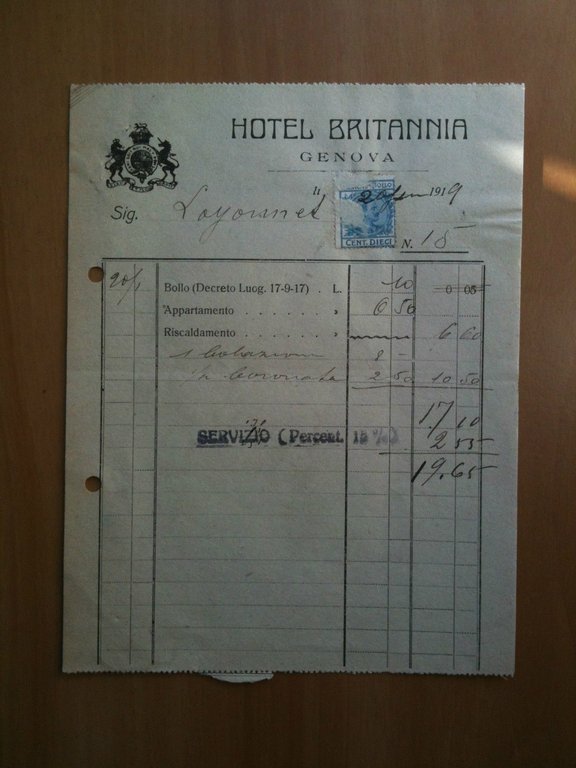 HOTEL BRITANNIA
GENOVA
li 20 1919
Sig.
CENT. DIECI
N. 15
20/1 Bollo (Decreto Luog. 17-9-17) . L. 10 0 05
Appartamento . . . . . . . » 6 50
Riscaldamento . . . . . . » 6 60
1 Colazione 8 -
1/2 Coronata 2 50 10 50
17.10
SERVIZIO (Percent. 15 %) 2 55
19.65